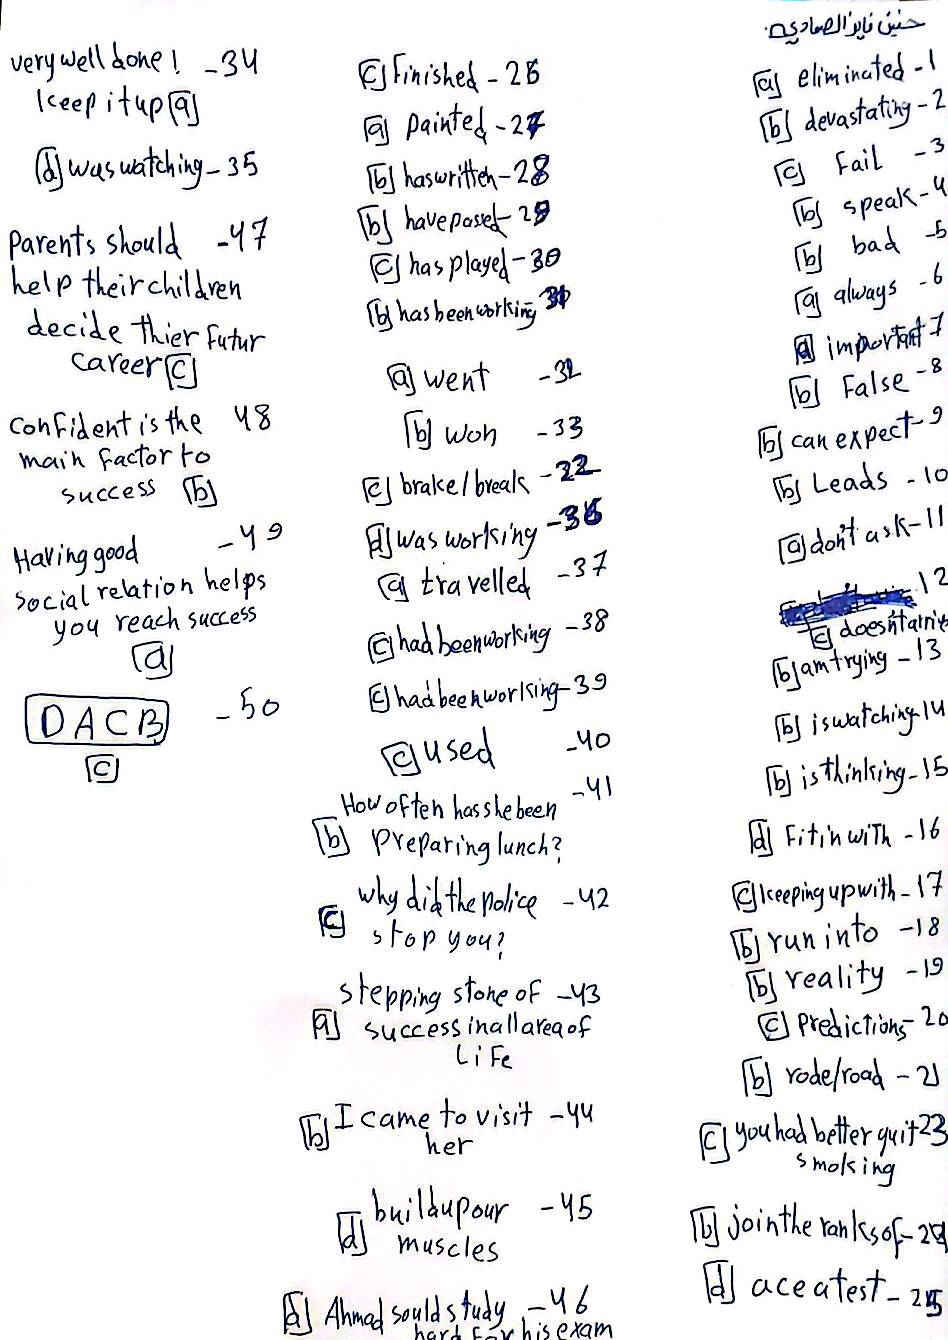 حنين فايز الصمادي.
[a] eliminated - 1
[b] devastating - 2
[c] Fail - 3
[b] speak - 4
[b] bad - 5
[a] always - 6
[a] important 7
[b] False - 8
[b] can expect - 9
[b] Leads - 10
[a] don't ask - 11
12
[c] doesn't
[b] am trying - 13
[b] is watching - 14
[b] is thinking - 15
[d] Fit in with - 16
[c] keeping up with - 17
[b] run into - 18
[b] reality - 19
[c] predictions - 20
[b] rode/road - 21
[c] you had better quit 23
smoking
[b] join the ranks of - 24
[d] ace a test - 25
[c] Finished - 26
[a] painted - 27
[b] has written - 28
[b] have pased - 29
[c] has played - 30
[b] has been working 31
[a] went - 32
[b] won - 33
[c] brake/break - 22
[d] was working - 36
[a] travelled - 37
[c] had been working - 38
[c] had been working - 39
[c] used - 40
How often has she been - 41
[b] preparing lunch?
why did the police - 42
[c] stop you?
stepping stone of - 43
[a] success in all area of
Life
[b] I came to visit - 44
her
build up our - 45
[d] muscles
[a] Ahmad sould study - 46
hard For his exam
very well done! - 34
keep it up [a]
[d] was watching - 35
parents should - 47
help their children
decide thier Futur
career [c]
confident is the 48
main Factor to
success [b]
Having good - 49
social relation helps
you reach success
[a]
DACB - 50
[c]